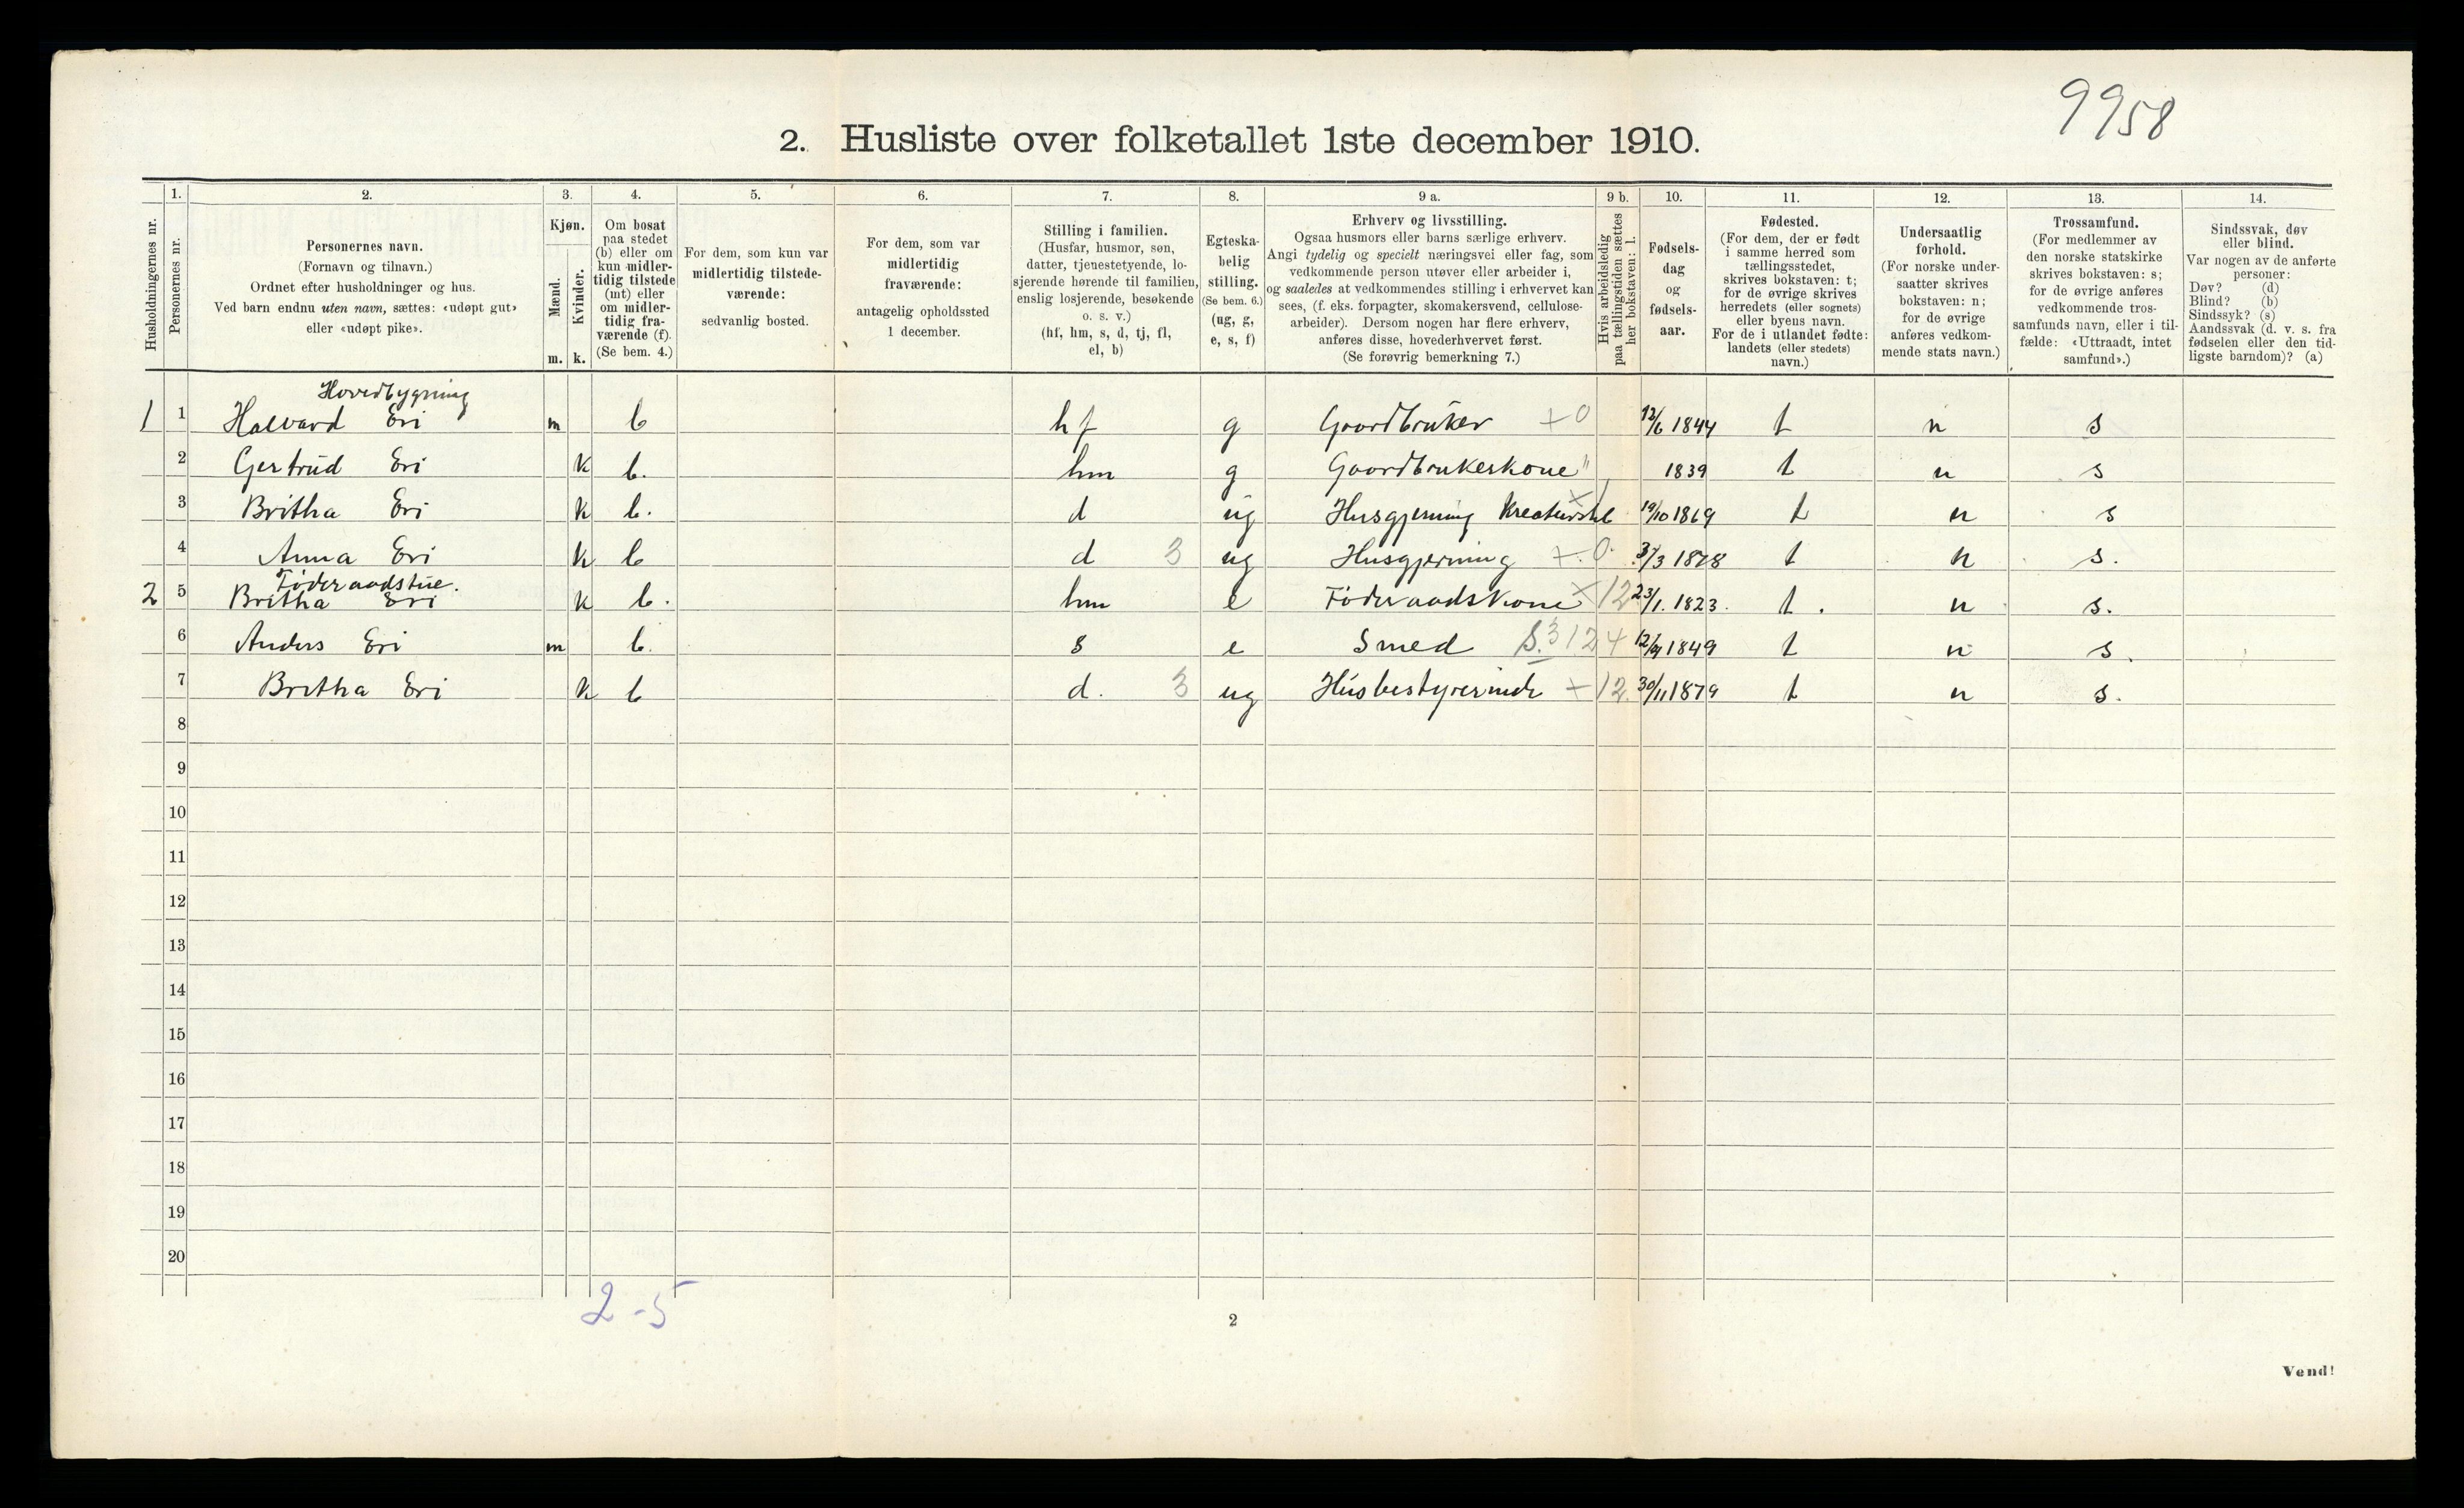 9958
2. Husliste over folketallet 1ste december 1910.
Husholdningernes nr.
1.
Personernes nr.
2.
Personernes navn.
(Fornavn og tilnavn.)
Ordnet efter husholdninger og hus.
Ved barn endnu uten navn, sættes: «udøpt gut»
eller «udøpt pike».
3.
Kjøn.
Mænd.
Kvinder.
m. k.
4.
Om bosat
paa stedet
(b) eller om
kun midler-
tidig tilstede
(mt) eller
om midler-
tidig fra-
værende (f).
(Se bem. 4.)
5.
For dem, som kun var
midlertidig tilstede-
værende:
sedvanlig bosted.
6.
For dem, som var
midlertidig
fraværende:
antagelig opholdssted
1 december.
7.
Stilling i familien.
(Husfar, husmor, søn,
datter, tjenestetyende, lo-
sjerende hørende til familien,
enslig losjerende, besøkende
o. s. v.)
(hf, hm, s, d, tj, fl,
el, b)
8.
Egteska-
belig
stilling.
(Se bem. 6.)
(ug, g,
e, s, f)
9 a.
Erhverv og livsstilling.
Ogsaa husmors eller barns særlige erhverv.
Angi tydelig og specielt næringsvei eller fag, som
vedkommende person utøver eller arbeider i,
og saaledes at vedkommendes stilling i erhvervet kan
sees, (f. eks. forpagter, skomakersvend, cellulose-
arbeider). Dersom nogen har flere erhverv,
anføres disse, hovederhvervet først.
(Se forøvrig bemerkning 7.)
9 b.
Hvis arbeidsledig
paa tællingstiden sættes
her bokstaven: l.
10.
Fødsels-
dag
og
fødsels-
aar.
11.
Fødested.
(For dem, der er født
i samme herred som
tællingsstedet,
skrives bokstaven: t;
for de øvrige skrives
herredets (eller sognets)
eller byens navn.
For de i utlandet fødte:
landets (eller stedets)
navn.)
12.
Undersaatlig
forhold.
(For norske under-
saatter skrives
bokstaven: n;
for de øvrige
anføres vedkom-
mende stats navn.)
13.
Trossamfund.
(For medlemmer av
den norske statskirke
skrives bokstaven: s;
for de øvrige anføres
vedkommende tros-
samfunds navn, eller i til-
fælde: «Uttraadt, intet
samfund».)
14.
Sindssvak, døv
eller blind.
Var nogen av de anførte
personer:
Døv? (d)
Blind? (b)
Sindssyk? (s)
Aandssvak (d. v. s. fra
fødselen eller den tid-
ligste barndom)? (a)
Hovedbygning
1 1 Halvard Eri m b hf g Gaardbruker + 0 12/6 1844 t n s
2 Gertrud Eri k b. hm g Gaardbrukerkone " 1839 t n s
3 Britha Eri k b. d ug Husgjerning Kreaturstel × 19/10 1869 t n s
4 Anna Eri k b d 3 ug Husgjerning +.0. /3 1878 t n s.
Føderaadstue.
2 5 Britha Eri k b. hm e Føderaadskone × 12 23/1. 1823. t. n s.
6 Anders Eri m b. s e Smed S.3124 12/9 1849 t n s.
7 Britha Eri k b d. 3 ug Husbestyrerinde + 12. 30/11 1879 t n s.
8
9
10
11
12
13
14
15
16
17
18
19
20
2-5
2
Vend!